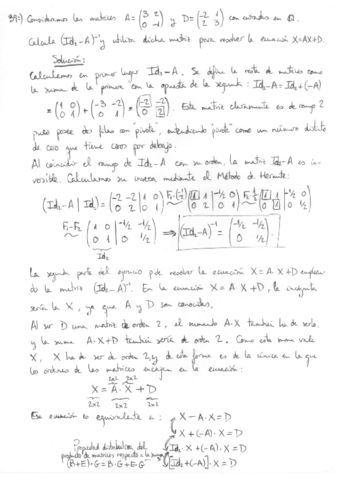 39º) Consideremos las matrices A=(3 2; 0 -1) y D=(-2 1; 2 3) con entradas en Q.
Calcula (Id₂-A)⁻¹ y utiliza dicha matriz para resolver la ecuación X=AX+D.
Solución:
Calculemos en primer lugar Id₂-A. Se define la resta de matrices como
la suma de la primera con la opuesta de la segunda: Id₂-A=Id₂+(-A)
=(1 0; 0 1)+(-3 -2; 0 1)=(-2 -2; 0 2). Esta matriz claramente es de rango 2
pues posee dos filas con pivote, entendiendo "pivote" como un número distinto
de cero que tiene ceros por debajo.
Al coincidir el rango de Id₂-A con su orden, la matriz Id₂-A es in-
versible. Calculamos su inversa mediante el Método de Hermite:
(Id₂-A | Id)=(-2 -2 | 1 0; 0 2 | 0 1) (1 1 | -1/2 0; 0 2 | 0 1) (1 1 | -1/2 0; 0 1 | 0 1/2)
F₁-F₂ (1 0 | -1/2 -1/2; 0 1 | 0 1/2) ⟹ (Id₂-A)⁻¹=(-1/2 -1/2; 0 1/2)
Id₂
La segunda parte del ejercicio pide resolver la ecuación X=A·X+D emplean-
do la matriz (Id₂-A)⁻¹. En la ecuación X=A·X+D, la incógnita
sería la X, ya que A y D son conocidas.
Al ser D una matriz de orden 2, el sumando A·X tendrá que serlo,
y la suma A·X+D también sería de orden 2. Como esta suma vale
X, X ha de ser de orden 2, y de esta forma es de la única en la que
los órdenes de las matrices encajen en la ecuación:
2x2 2x2
X = A · X + D
2x2 2x2 2x2
Esa ecuación es equivalente a: X-A·X=D
X+(-A)·X=D
Propiedad distributiva del
producto de matrices respecto a la suma
Id₂·X+(-A)·X=D
(B+E)·G=B·G+E·G
[Id₂+(-A)]·X=D